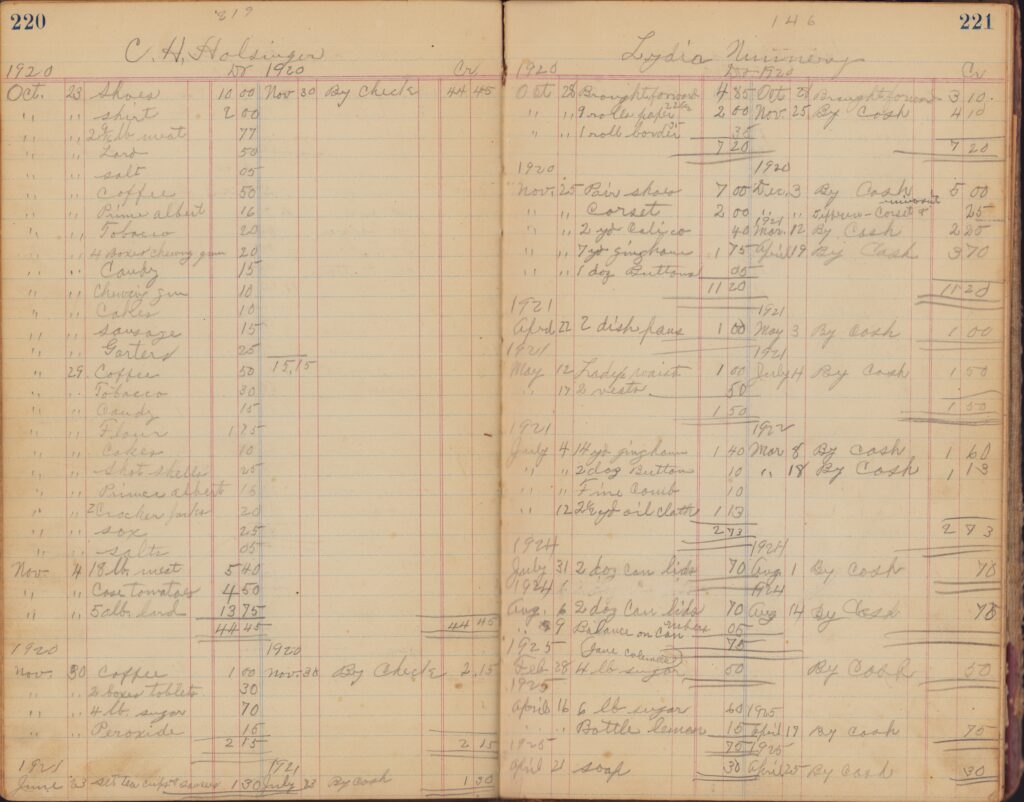 220
219
C. H. Holsinger
1920 Dr 1920 Cr
Oct. 23 Shoes 10 00 Nov 30 By Check 44 45
" " shirt 2 00
" " lb meat 77
" " Lard 50
" " salt 05
" " Coffee 50
" " Prince albert 16
" " Tobacco 20
" " 4 Boxes chewing gum 20
" " Candy 15
" " Chewing gum 10
" " Cakes 10
" " Sausage 15
" " Garters 25
" 29 Coffee 50 15,15
" " Tobacco 30
" " Candy 15
" " Flour 1 75
" " Cakes 10
" " Shot shells 25
" " Prince albert 16
" " 2 Cracker jacks 20
" " sox 25
" " salts 05
Nov. 4 18 lb meat 5 40
" " Case tomatoes 4 50
" " 50 lb lard 13 75
44 45 44 45
1920 1920
Nov. 30 Coffee 1 00 Nov. 30 By Check 2.15
" " 2 boxes tablets 30
" " 4 lb. sugar 70
" " Peroxide 15
2 15 2 15
1921 1921
June 23 set tea cups & saucers 1 30 July 23 By Cash 1 30
221
146
Lydia Nunnery
1920 Dr 1920 Cr
Oct 28 Brought forward 4 85 Oct 28 Brought forward 3 10
" " 9 rolls paper 2 00 Nov. 25 By Cash 4 10
" " 1 roll border 35
7 20 7 20
1920 1920
Nov. 25 Pair shoes 7 00 Dec. 3 By Cash 5 00
" " Corset 2 00 " " Corset & 25
" " 2 yd Calico 40 1921 Mar. 12 By Cash 2 25
" " 7 yd gingham 1 75 April 19 By Cash 3 70
" " 1 doz Buttons 05
11 20 11 20
1921 1921
April 22 2 dish pans 1 00 May 3 By Cash 1 00
1921 1921
May 12 Lady's waist 1 00 July 4 By Cash 1 50
" 17 2 vests 50
1 50 1 50
1921 1922
July 4 14 yd gingham 1 40 Mar 8 By Cash 1 60
" " 2 doz Button 10 " 18 By Cash 1 13
" " Fine Comb 10
" 12 yd oil cloth 1 13
2 73 2 73
1924 1924
July 31 2 doz can lids 70 Aug 1 By Cash 70
1924 1924
Aug. 6 2 doz Can lids 70 Aug 14 By Cash 75
" 9 Balance on Can rubbers 05
75
1925 (Jane)
Feb 28 4 lb sugar 50 By Cash 50
1925
April 16 6 lb sugar 60 1925
Bottle lemon 15 April 17 By Cash 75
75
1925 1925
April 21 soap 30 April 25 By Cash 30